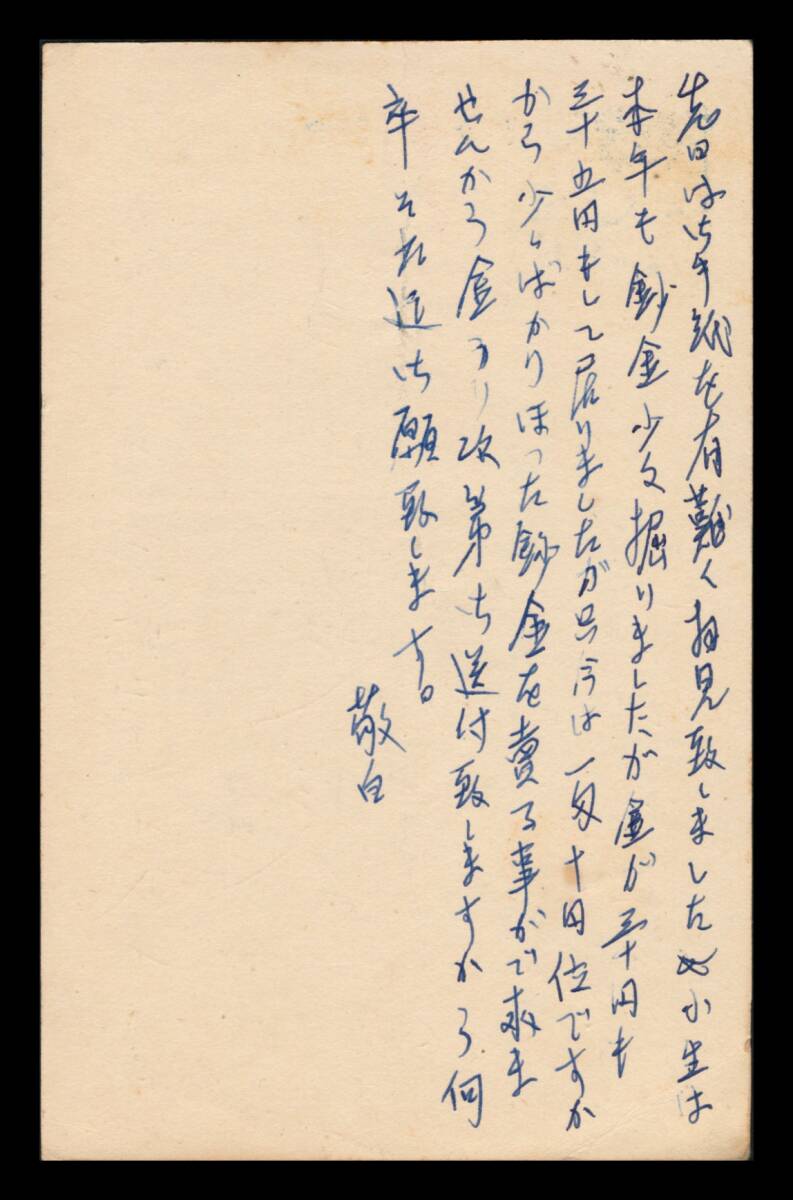 先日は御手紙を有難く拝見致しました 小生は
本年も鈔金少々掘りましたが金が三十円も
三十五円もして居りましたが只今は一匁十円位ですか
から少しばかりほった鈔金を賣る事がで来ま
せんから金うり次第御送付致しますから何
卒それ迄御願致します。
敬白